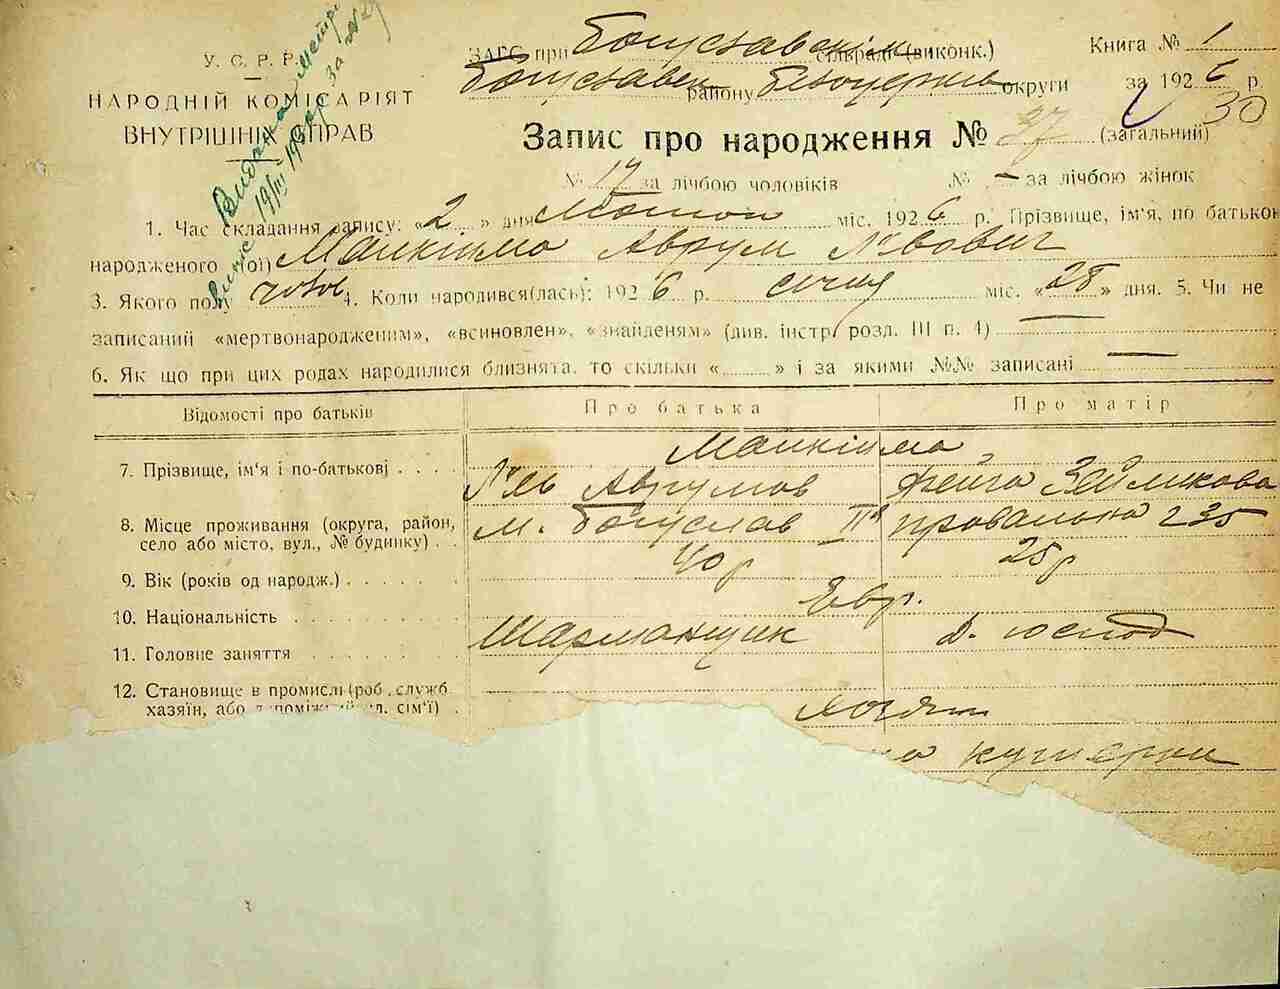 У. С. Р. Р.
НАРОДНІЙ КОМІСАРІЯТ
ВНУТРІШНІХ СПРАВ
Видана метр
19/III за №
ЗАГС при Богуславскім сільраді (виконк.) Книга № 1
Богуславск району Білоцерків округи за 1926 р.
30
Запис про народження № 27 (загальний)
№ 17 за лічбою чоловіків № — за лічбою жінок
1. Час складання запису: "2" дня міс. 1926 р. Прізвище, ім'я, по батькові
народженого (ої) Аврум Львович
3. Якого полу чолов 4. Коли народився(лась): 1926 р. січня міс. «28» дня. 5. Чи не
записаний «мертвонародженим», «всиновлен», «знайденям» (див. інстр. розд. III п. 4) —
6. Як що при цих родах народилися близнята, то скільки «........» і за якими №№ записані —
Відомості про батьків Про батька Про матір
7. Прізвище, ім'я і по-батькові . . . .
Аврумов Фейга
8. Місце проживання (округа, район,
село або місто, вул., № будинку) . . м. Богуслав 235
9. Вік (років од народж.) . . . . . 40 р 25 р
10. Національність . . . . . . . . Евр.
11. Головне заняття . . . . . . . Шарманщик д. господ
12. Становище в промислі (роб., служб
хазяїн, або допоміжний чл. сім'ї) .